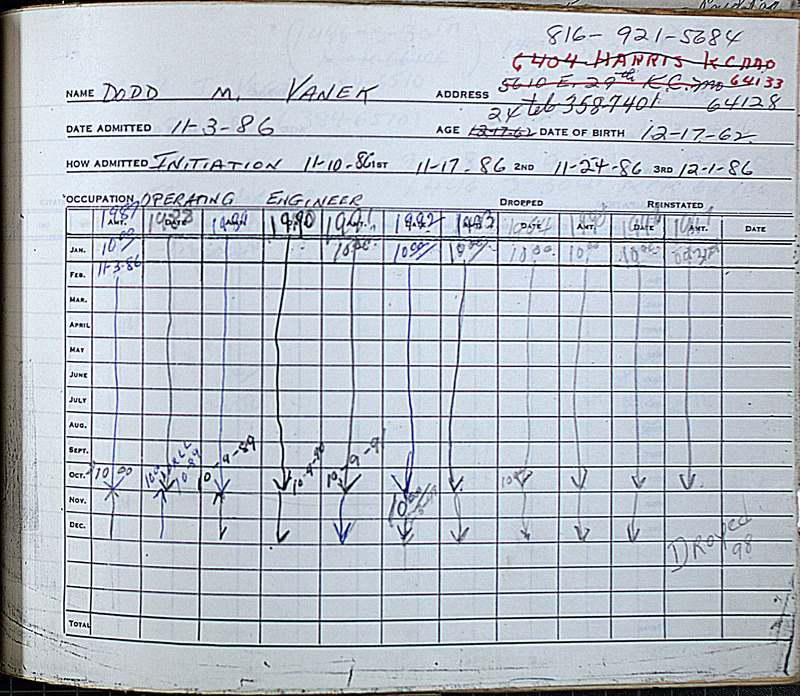 816-921-5684
6404 HARRIS KCMO
5610 E. 29th K.C. mo 64133
NAME DODD M. VANEK ADDRESS
24 3587401 64128
DATE ADMITTED 11-3-86 AGE 12-17-62 DATE OF BIRTH 12-17-62
HOW ADMITTED INITIATION 11-10-86 1ST 11-17-86 2ND 11-24-86 3RD 12-1-86
OCCUPATION OPERATING ENGINEER DROPPED REINSTATED
1987 1988 1989 1990 1991 1992 1993
AMT. DATE AMT. DATE AMT. DATE AMT. DATE AMT. DATE AMT. DATE
JAN. 10.00 10.00 10.00 10.00 10.00 10.00 10.00
FEB. 11-3-86
MAR.
APRIL
MAY
JUNE
JULY
AUG.
SEPT.
OCT. 10.00 10-9-89 10-9-90 10-9-91
NOV. 10.00
DEC.
Droped
98
TOTAL